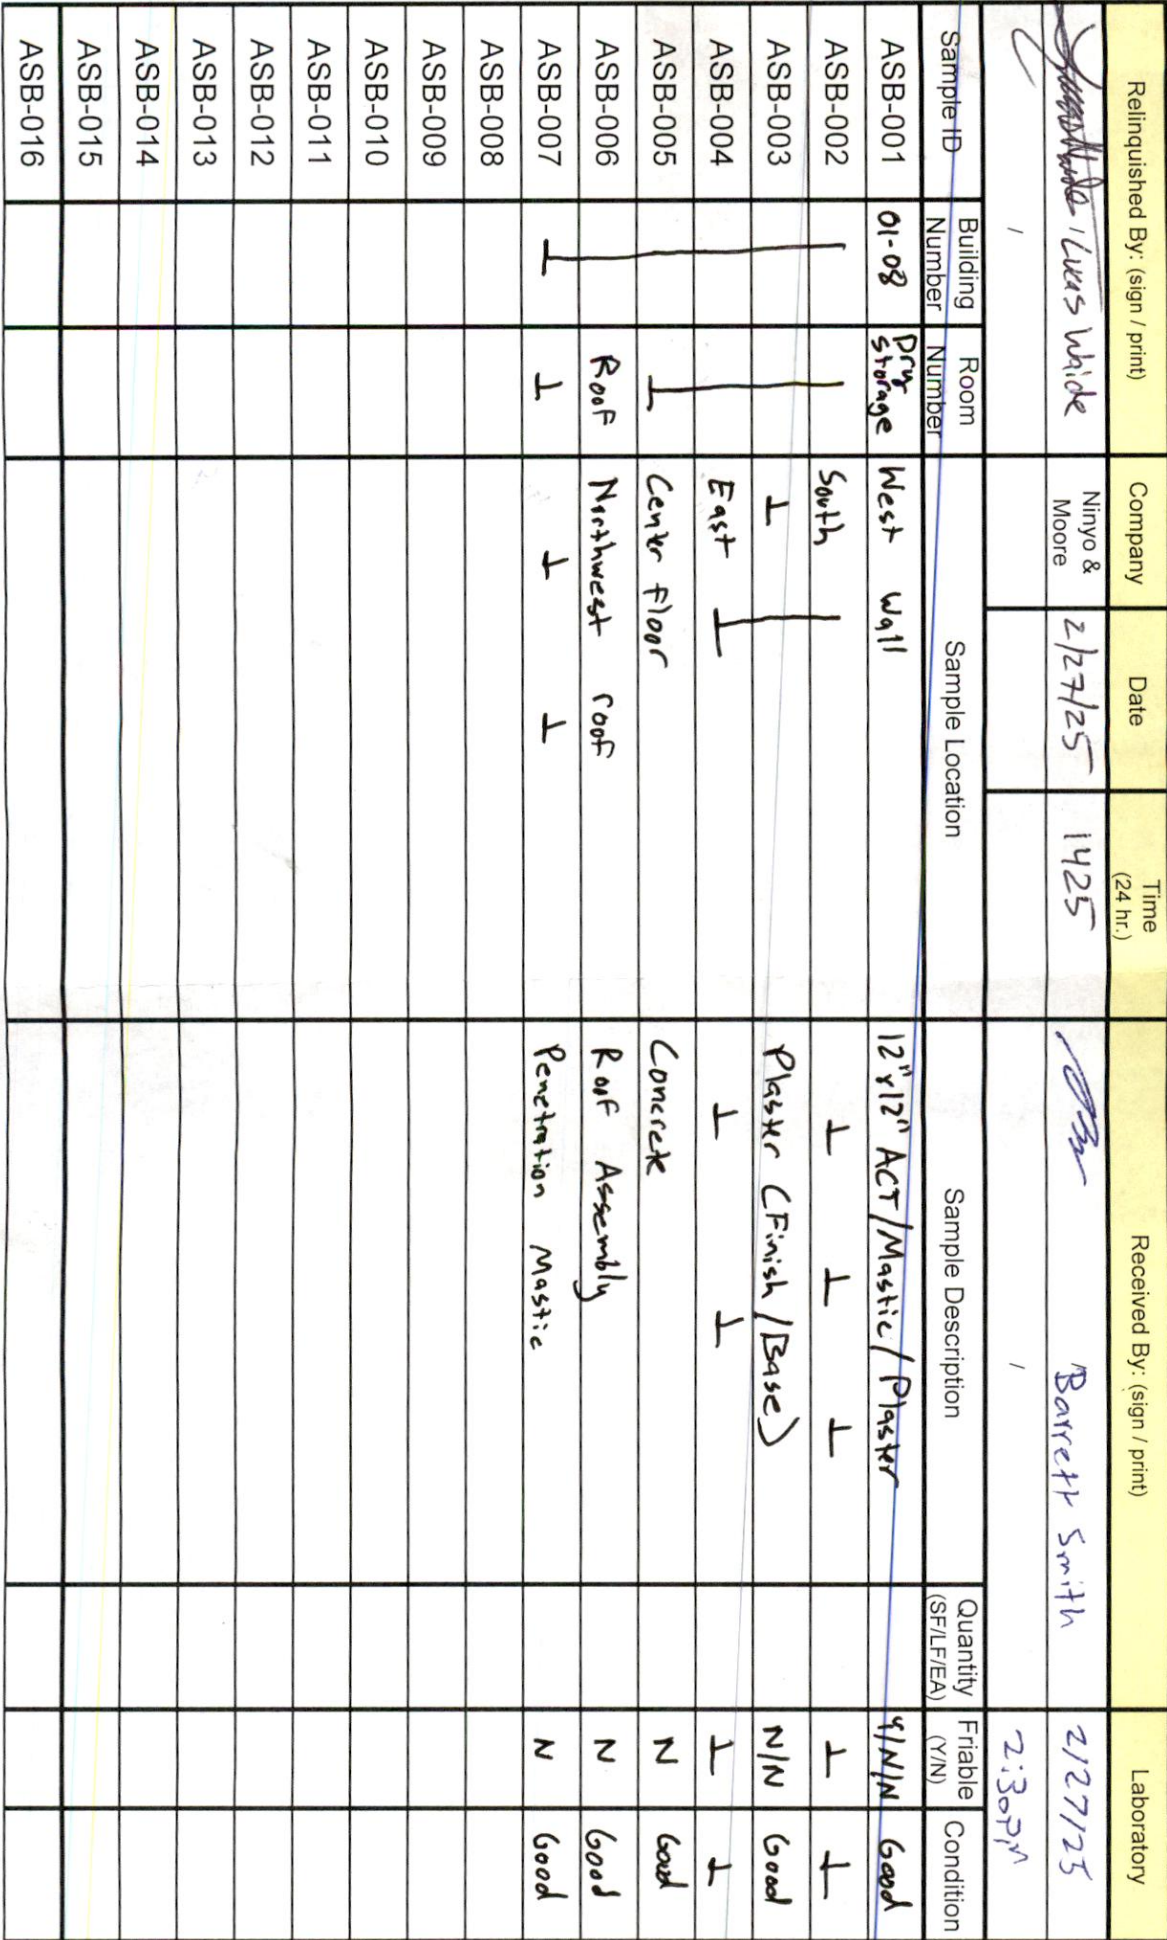 Relinquished By: (sign / print) Company Date Time (24 hr.) Received By: (sign / print) Laboratory
/ Lucas Waide Ninyo & Moore 2/27/25 1425 Barrett Smith 2/27/25
/ / 2:30pm
Sample ID Building Number Room Number Sample Location Sample Description Quantity (SF/LF/EA) Friable (Y/N) Condition
ASB-001 01-08 Dry storage West Wall 12"x12" ACT/Mastic/Plaster Y/N/N Good
ASB-002 South ⊥ ⊥ ⊥ ⊥ ⊥
ASB-003 ⊥ Plaster (Finish/Base) N/N Good
ASB-004 East ⊥ ⊥ ⊥ ⊥ ⊥
ASB-005 ⊥ Center floor Concrete N Good
ASB-006 Roof Northwest roof Roof Assembly N Good
ASB-007 ⊥ ⊥ ⊥ ⊥ Penetration Mastic N Good
ASB-008
ASB-009
ASB-010
ASB-011
ASB-012
ASB-013
ASB-014
ASB-015
ASB-016